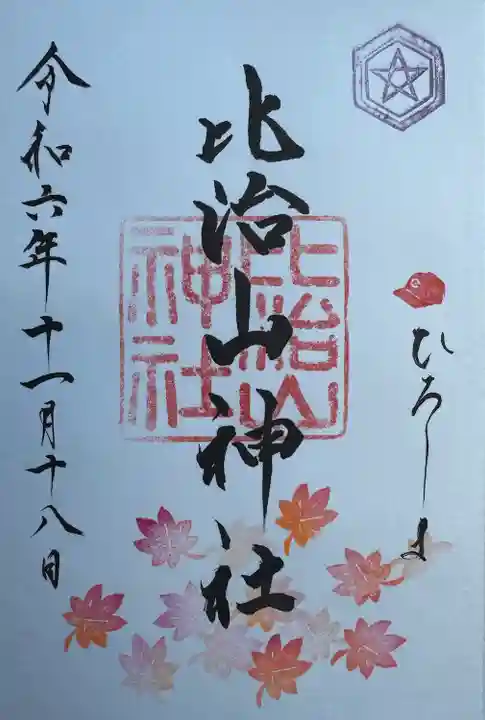 ひろしま
比治山神社
比治山
神社
令和六年十一月十八日